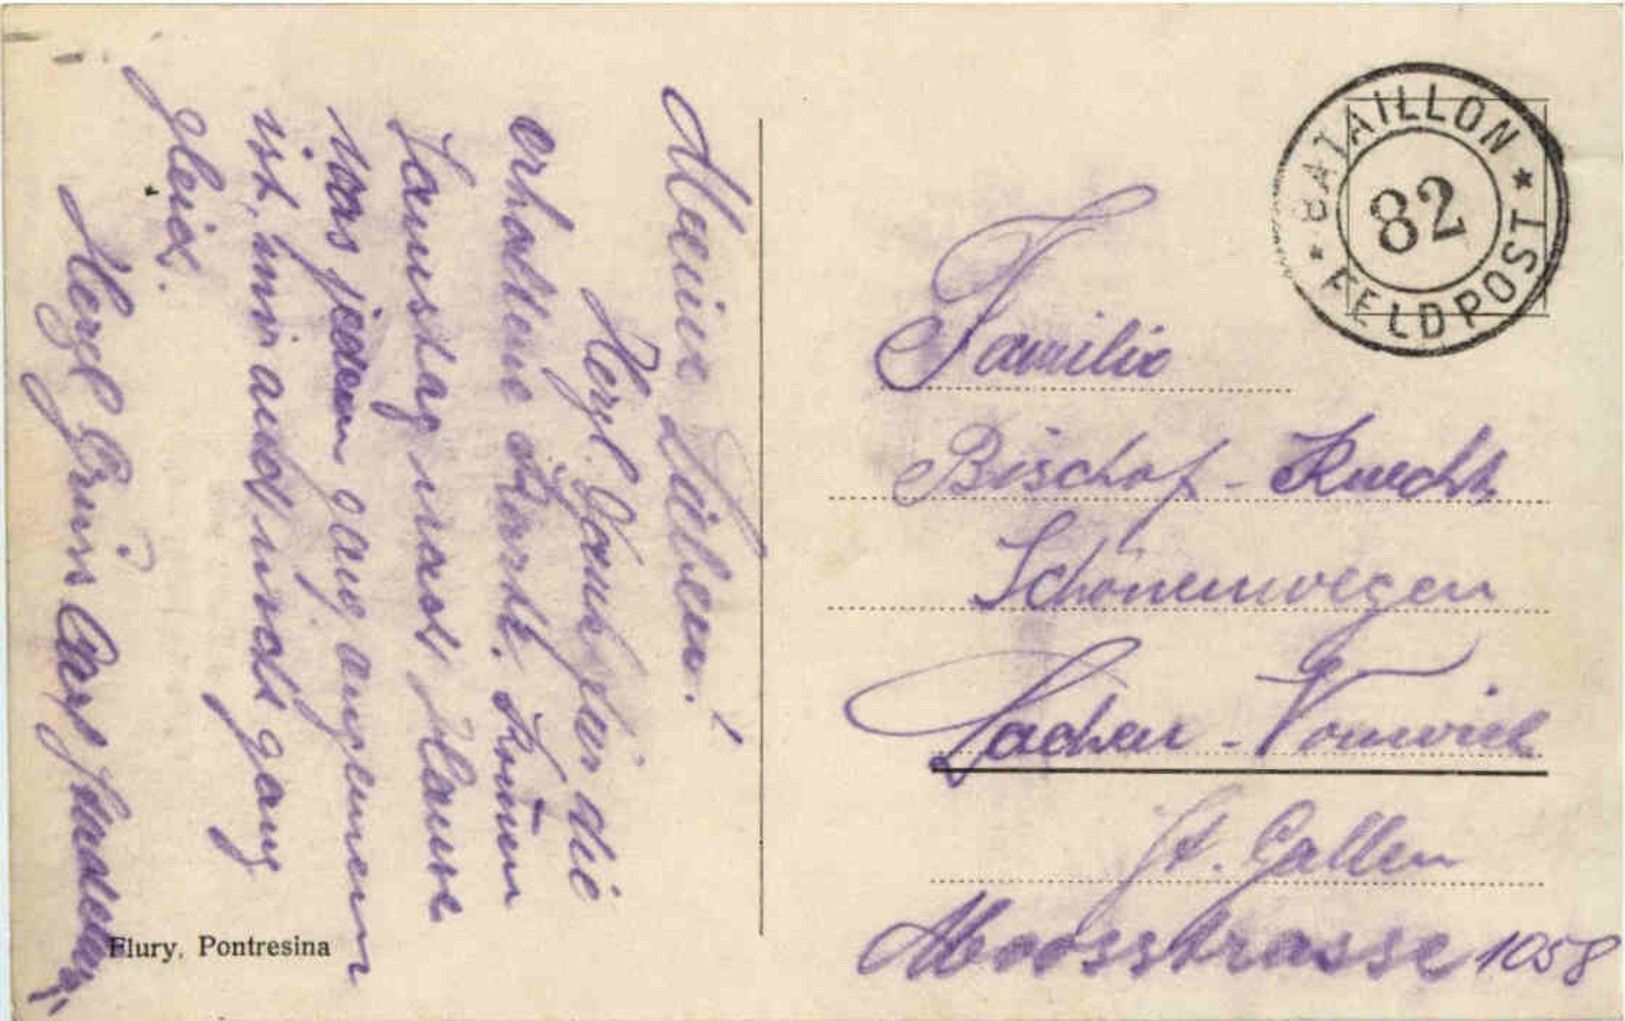 Meine Lieben!
Herzl. Dank für die
erhaltene Karte. Komme
Samstag nach Hause
was jedem ganz angenem
ist, mir auch nicht ganz
gleich.
Herzl. Gruss Carl
Flury, Pontresina
* BATAILLON *
82
FELDPOST
Familie
Bischof - Knecht
Schönenwegen
Lachen - Vonwiel
St. Gallen
Moosstrasse 1058